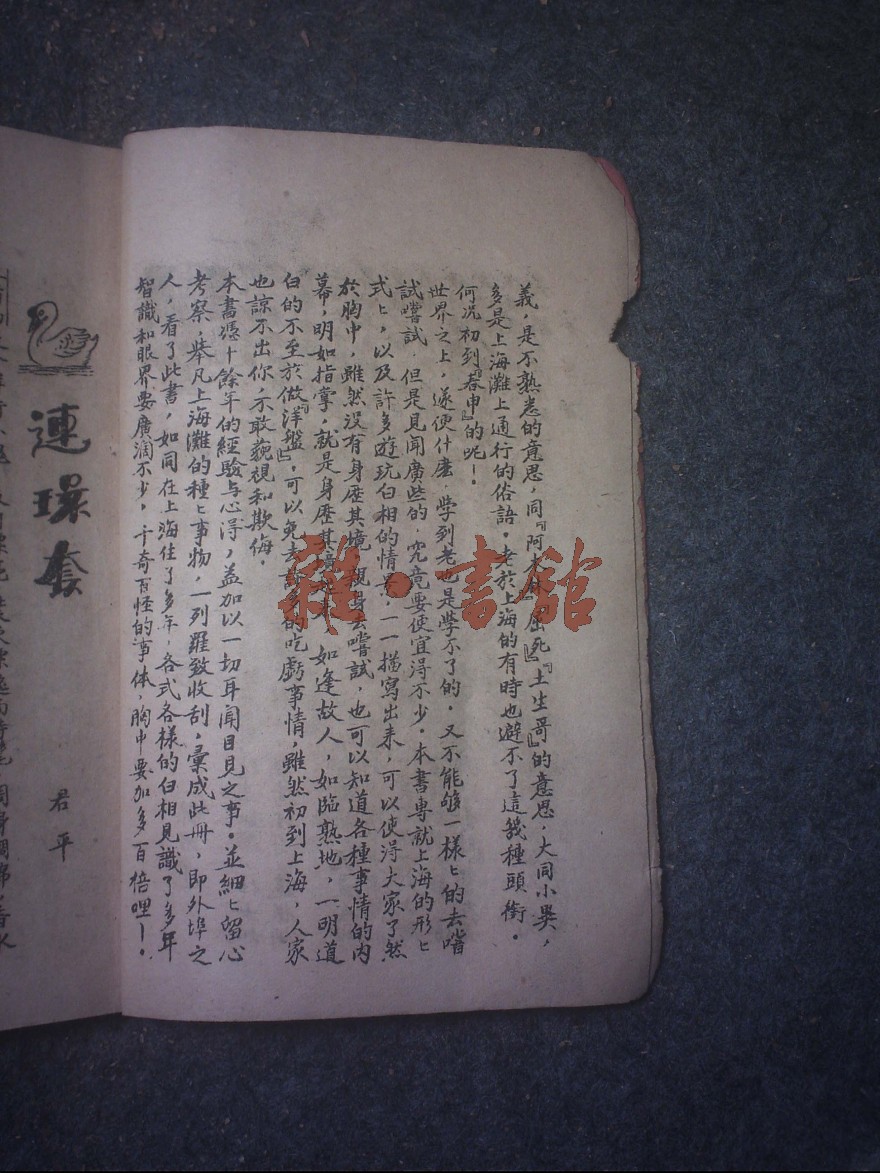 義，是不熟悉的意思，同『阿木林』『屈死』『土生哥』的意思，大同小異，
多是上海灘上通行的俗語。老於上海的有時也避不了這幾種頭銜。
何況初到『春申』的呢！。
世界之上，遂使什麼 學到老也是学不了的，又不能够一樣ヒ的去嘗
試嚐試．但是見聞廣些的．究竟要便宜得不少。本書專就上海的形ヒ
式ヒ，以及許多遊玩白相的情 ，一一描寫出来，可以使得大家了然
於胸中，雖然没有身歷其境，親身去嚐試，也可以知道各種事情的内
幕，明如指掌，就是身歷其 ，如逢故人，如臨熟地，一明道
白的不至於做『洋盤』，可以免去 的吃虧事情，雖然初到上海，人家
也諒不出你，不敢藐視和欺侮。
本書憑十餘年的經驗与心得，益加以一切耳闻目見之事。並細ヒ留心
考察，举凡上海灘的種ヒ事物，一列羅致收刮，彙成此冊，即外埠之
人，看了此書，如同在上海住了多年，各式各樣的白相見識了多年
智識和眼界要廣濶不少。千奇百怪的事体，胸中要加多百倍哩！。
連環套
君平
雜·書館